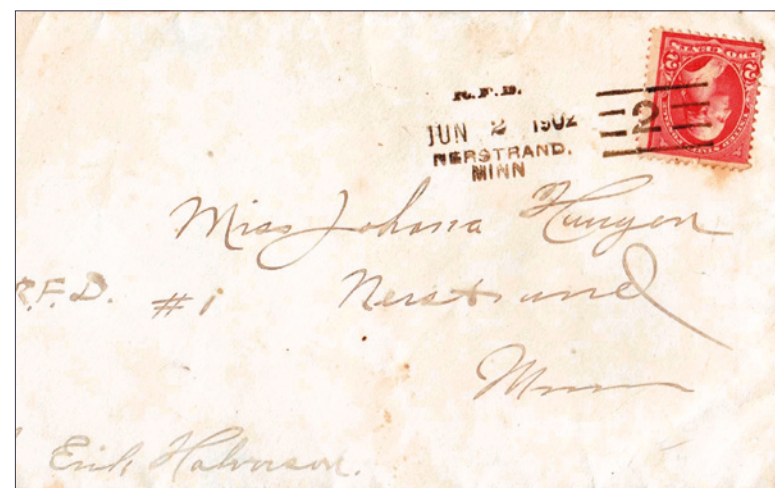 R.F.D.
JUN 2 1902
NERSTRAND,
MINN
2
Miss Johana Hungen
R.F.D. #1 Nerstrand
Minn
Erik Halvorson.